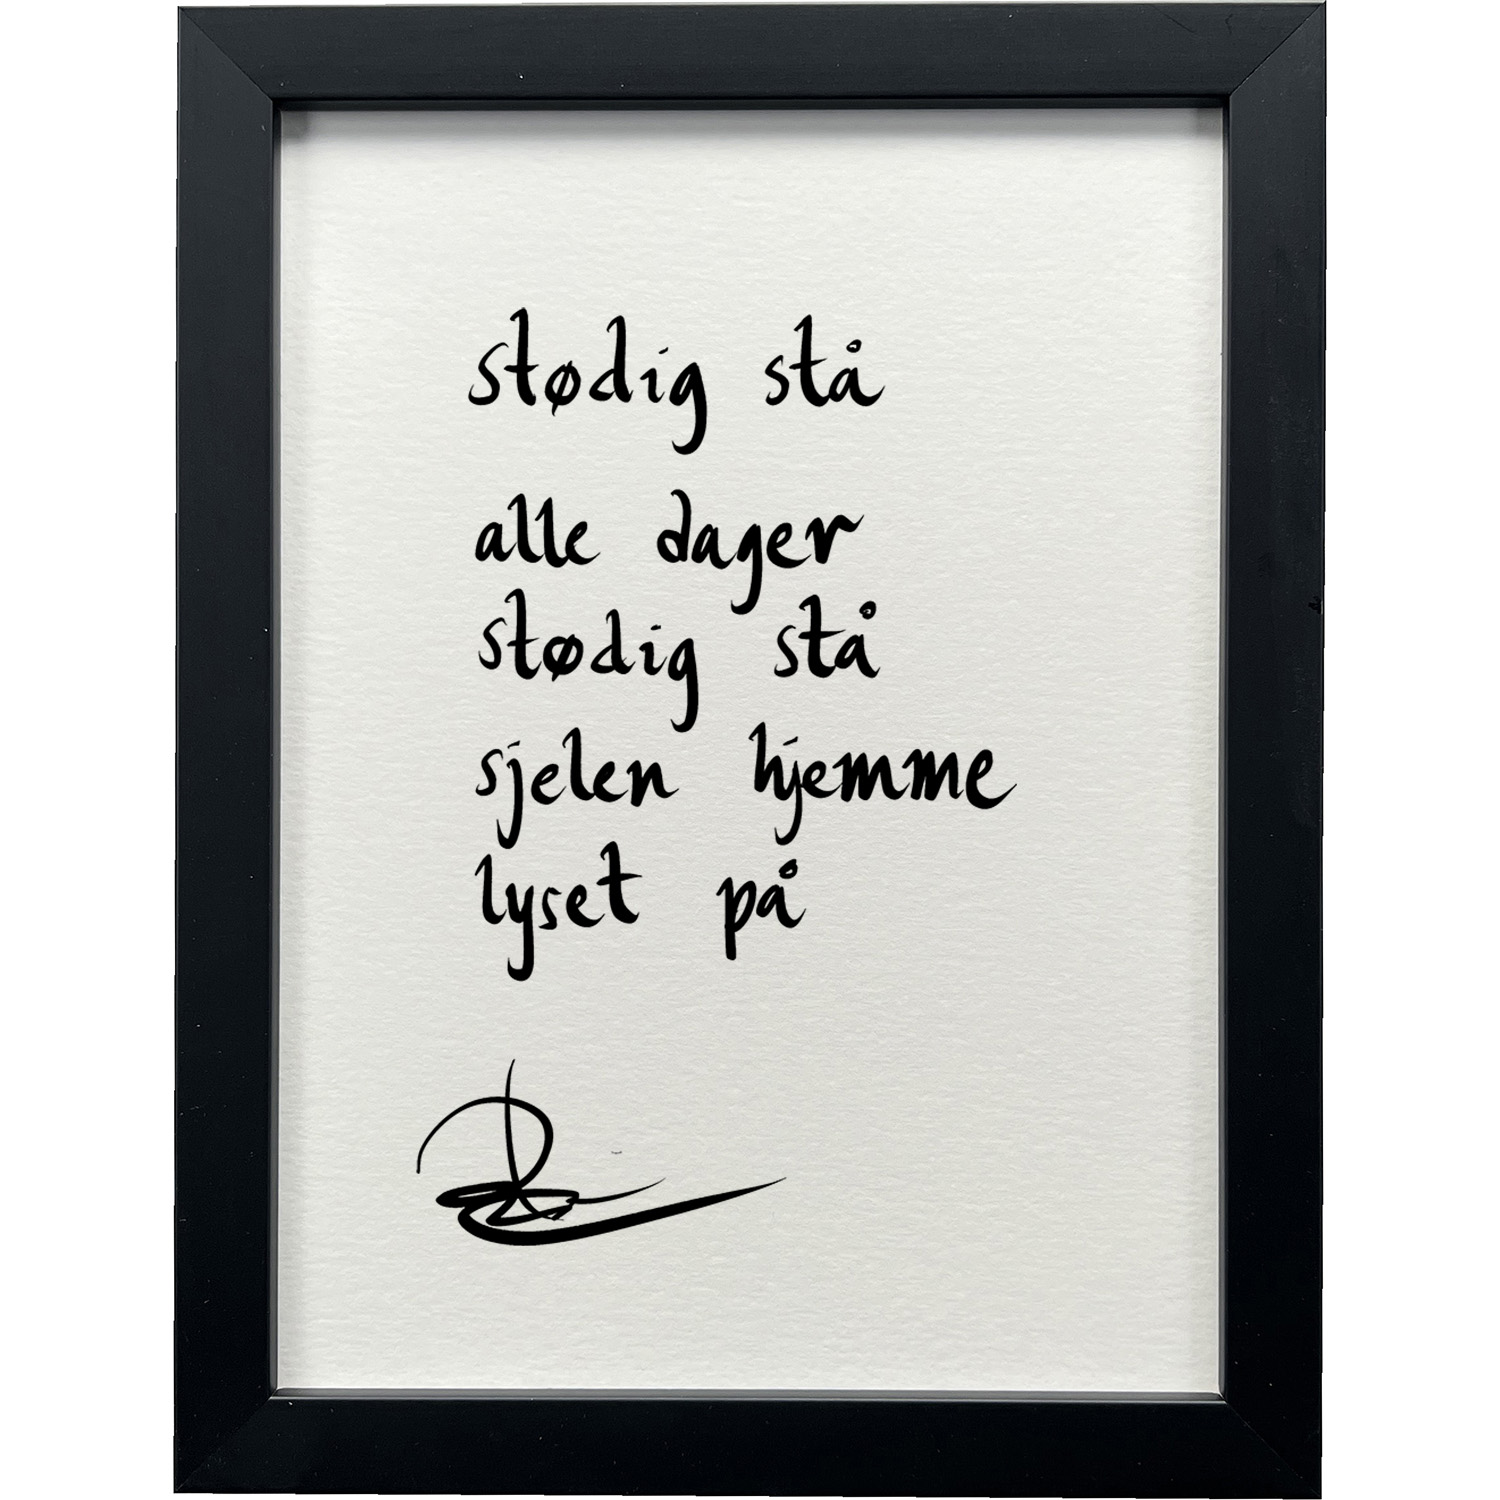 stødig stå
alle dager
stødig stå
sjelen hjemme
lyset på